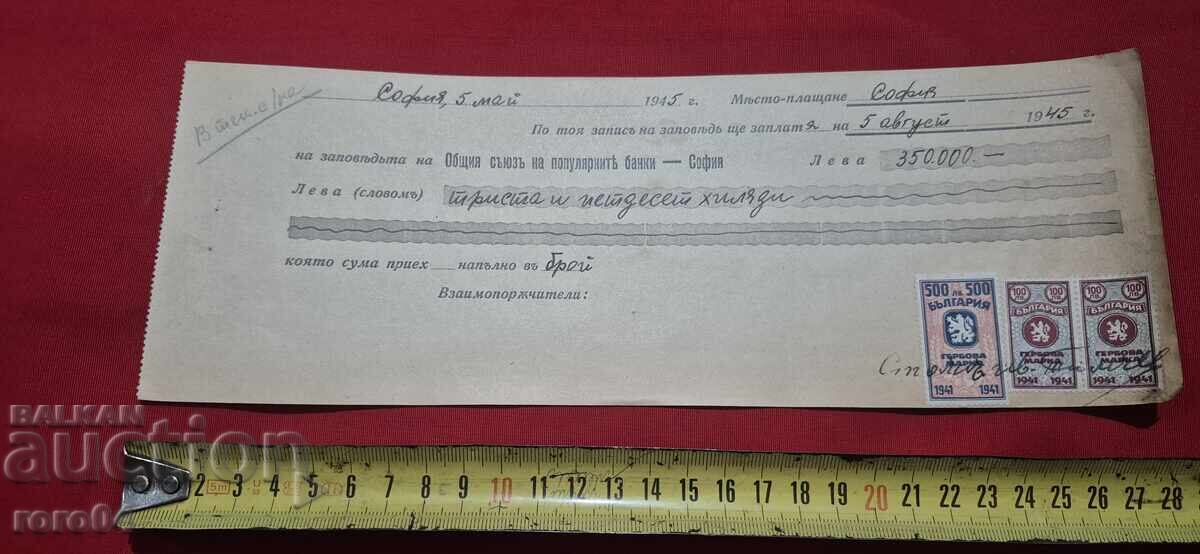 София, 5 май 1945 г. Мѣсто-плащане София
По тоя записъ на заповѣдь ще заплатя на 5 август 1945 г.
на заповѣдьта на Общия съюзъ на популярнитѣ банки — София Лева 350.000.—
Лева (словомъ) триста и петдесет хиляди
която сума приех напълно въ брой
Взаимопоржчители:
500 лв. 500
БЪЛГАРИЯ
ГЕРБОВА
МАРКА
1941 1941
100 ЛВ. 100 ЛВ.
БЪЛГАРИЯ
ГЕРБОВА
МАРКА
1941 1941
100 ЛВ. 100 ЛВ.
БЪЛГАРИЯ
ГЕРБОВА
МАРКА
1941 1941
BALKAN
auction
roro0
2 3 4 5 6 7 8 9 10 11 12 13 14 15 16 17 18 19 20 21 22 23 24 25 26 27 28
5m